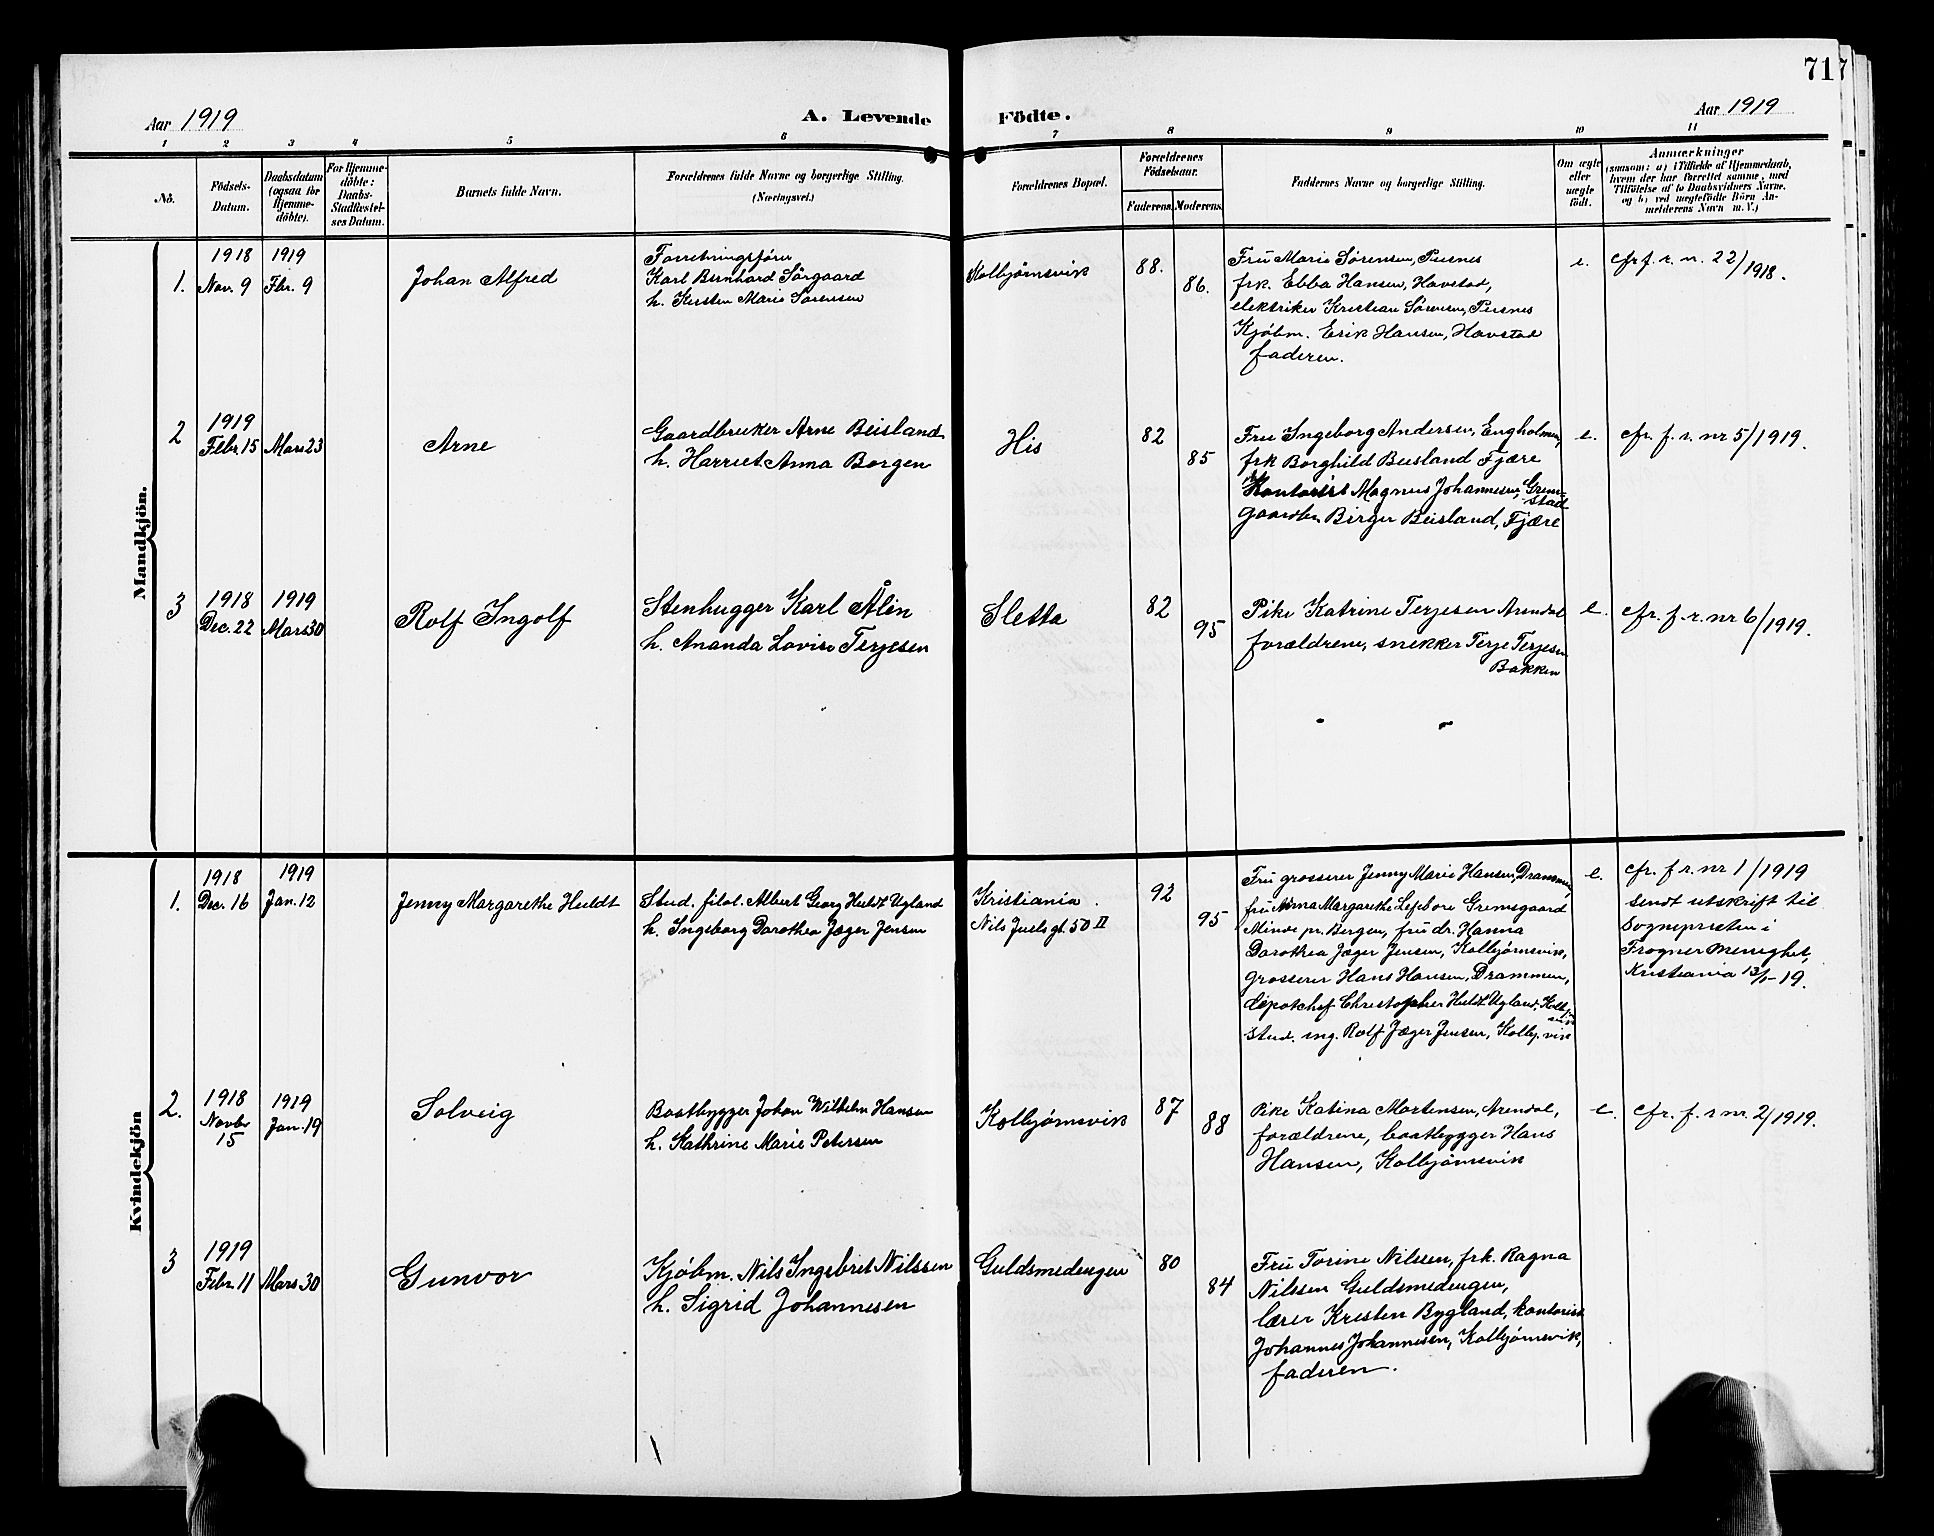 71
Aar 1919
A. Levende Födte.
Aar 1919
1 2 3 4 5 6 7 8 9 10 11
No.
Födsels-
Datum.
Daabsdatum
(ogsaa for
Hjemme-
döbte).
For Hjemme-
döbte:
Daabs-
Stadfestel-
ses Datum.
Barnets fulde Navn.
Forældrenes fulde Navne og borgerlige Stilling.
(Næringsvei.)
Forældrenes Bopæl.
Forældrenes
Födselsaar.
Faderens. Moderens.
Faddernes Navne og borgerlige Stilling.
Om ægte
eller
uægte
födt.
Anmærkninger
(saasom: a) i Tilfælde af Hjemmedaab,
hvem der har forrettet samme, med
Tilföielse af to Daabsvidners Navne.
og b) ved uægtefödte Börn An-
melderens Navn m. V.)
Mandkjön.
1.
1918
Nov. 9
1919
Fbr. 9
Johan Alfred
Forretningsfører
Karl Bernhard Sörgaard
h. Kirsten Marie Sørensen
Kolbjørnsvik
88.
86.
Fru Marie Sørensen, Pusnes
frk. Ebba Hansen, Havstad,
elektriker Kristian Sørensen, Pusnes
Kjøbm. Erik Hansen, Havstad
faderen.
e.
cfr f. r. n. 22/1918.
2
1919
Febr. 15
Mars 23
Arne
Gaardbruker Arne Beisland
h. Harriet Anna Borgen
His
82
85
Fru Ingeborg Andersen, Engholmen,
frk Borghild Beisland Fjære
Kontorist Magnus Johannesen, Grim-
stad
gaardbr Birger Beisland, Fjære
e.
cfr. f. r. nr 5/1919.
3
1918
Dec. 22
1919
Mars 30
Rolf Ingolf
Stenhugger Karl Ålin
h. Ananda Lovise Terjesen
Sletta
82
95
Pike Katrine Terjesen Arendal
forældrene, snekker Terje Terjesen
Bakken
e.
cfr. f. r. nr 6/1919.
Kvindekjön
1.
1918
Dec. 16
1919
Jan. 12
Jenny Margarethe Huldt
Stud. filol. Albert Georg Huldt Ugland
h. Ingeborg Dorothea Jæger Jensen
Kristiania
Nils Juels gt. 50 II
92
95
Fru grosserer Jenny Marie Hansen, Drammen,
fru Anna Margarethe Lefbore Gremsgaard
Minde pr. Bergen, fru dr. Hanna
Dorothea Jæger Jensen, Kolbjørnsvik,
grosserer Hans Hansen, Drammen,
depotchef Christopher Huldt Ugland,
stud. ing. Rolf Jæger Jensen, Kolbj. vik
e.
cfr. f r. nr 1/1919
sendt utskrift til
Sognepresten i
Frogner Menighet,
Kristiania 13/1-19.
2.
1918
Novbr
15
1919
Jan. 19
Solveig
Baatbygger Johan Wilhelm Hansen
h. Kathrine Marie Petersen
Kolbjørnsvik
87
88
Pike Katina Mortensen, Arendal,
forældrene, baatbygger Hans
Hansen, Kolbjørnsvik
e.
cfr. f. r nr. 2/1919.
3
1919
Febr. 11
Mars 30
Gunvor
Kjøbm. Nils Ingebret Nilssen
h. Sigrid Johannesen
Guldsmedengen
80
84
Fru Torine Nilssen, frk. Ragna
Nilssen Guldsmedengen,
lærer Kresten Bygland, kontorist
Johannes Johannesen, Kolbjørnsvik,
faderen.